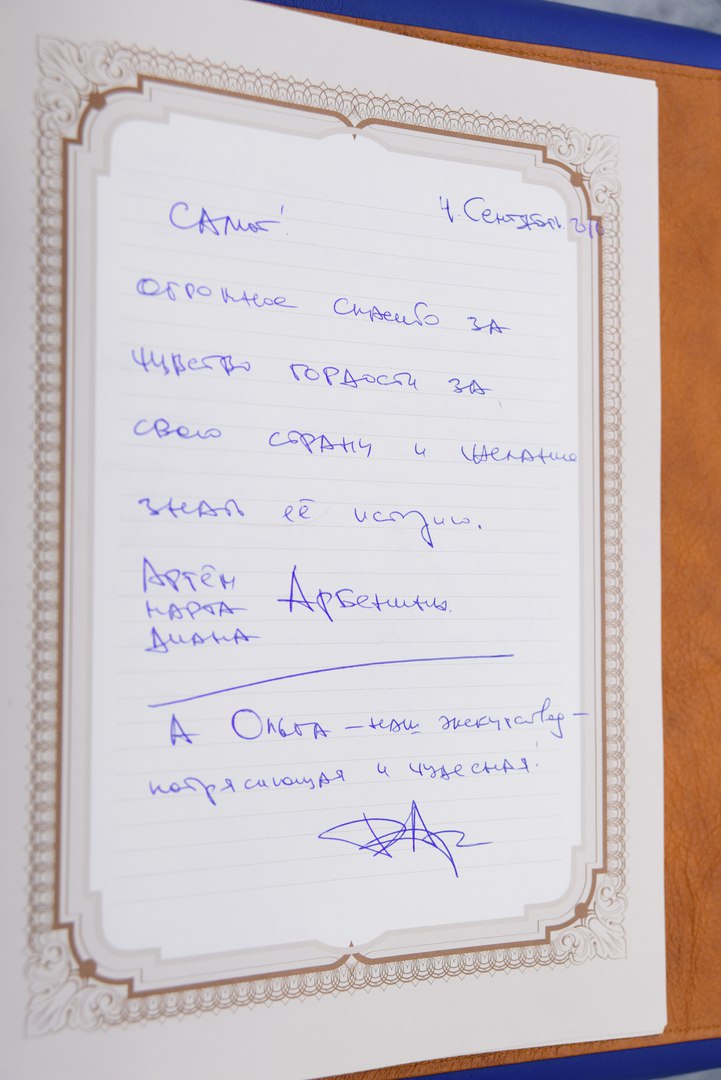 4. Сентябрь
Огромное спасибо за
чувство гордости за
свою страну и желание
знать её историю.
Артём
Марта
Диана
Арбенины.
А Ольга – наш экскурсовод –
потрясающая и чудесная!